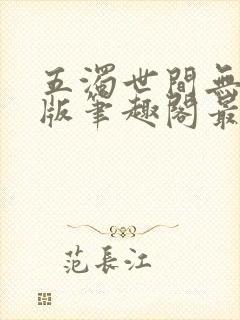 五濁世間無
版筆趣閣最
范長江